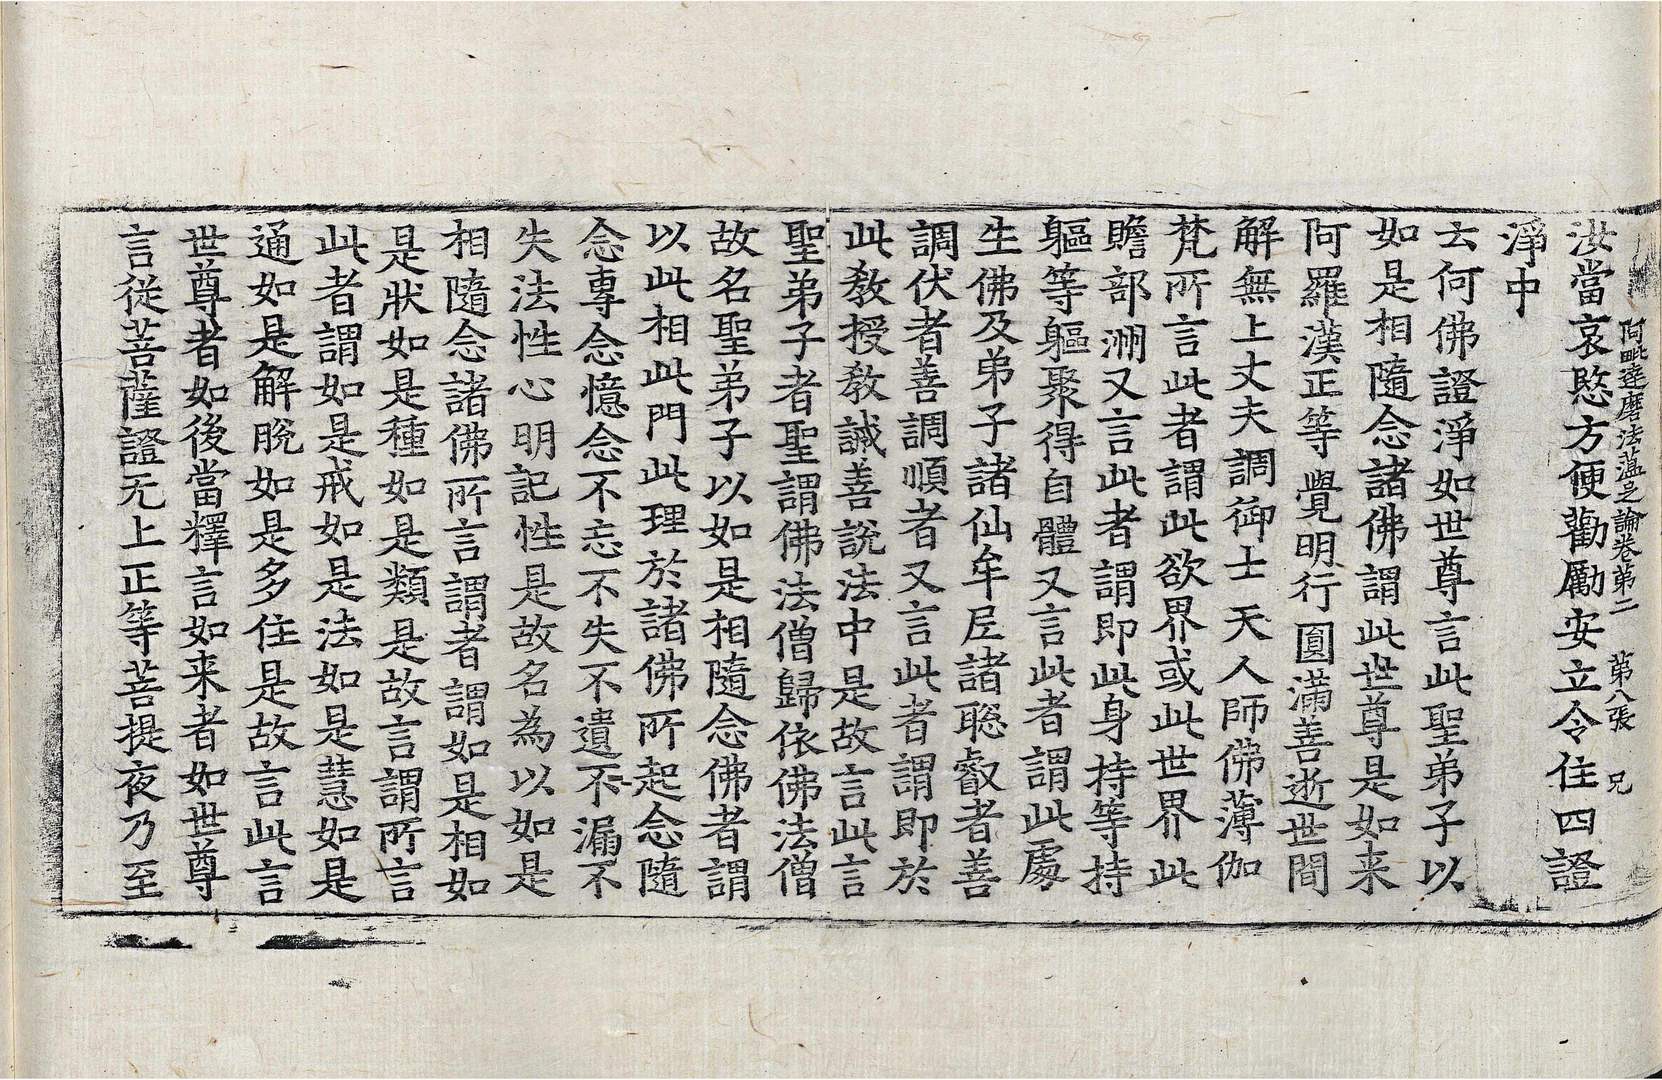 阿毗達磨法蘊足論卷第二　第八張　兄
汝當哀愍方便勸勵安立令住四證
淨中
云何佛證淨如世尊言此聖弟子以
如是相隨念諸佛謂此世尊是如来
阿羅漢正等覺明行圓滿善逝世間
解無上丈夫調御士天人師佛薄伽
梵所言此者謂此欲界或此世界此
贍部洲又言此者謂即此身持等持
軀等軀聚得自體又言此者謂此處
生佛及弟子諸仙牟尼諸聡叡者善
調伏者善調順者又言此者謂即於
此教授教誡善說法中是故言此言
聖弟子者聖謂佛法僧歸依佛法僧
故名聖弟子以如是相隨念佛者謂
以此相此門此理於諸佛所起念隨
念專念憶念不忘不失不遺不漏不
失法性心明記性是故名為以如是
相隨念諸佛所言謂者謂如是相如
是狀如是種如是類是故言謂所言
此者謂如是戒如是法如是慧如是
通如是解脫如是多住是故言此言
世尊者如後當釋言如来者如世尊
言從菩薩證无上正等菩提夜乃至